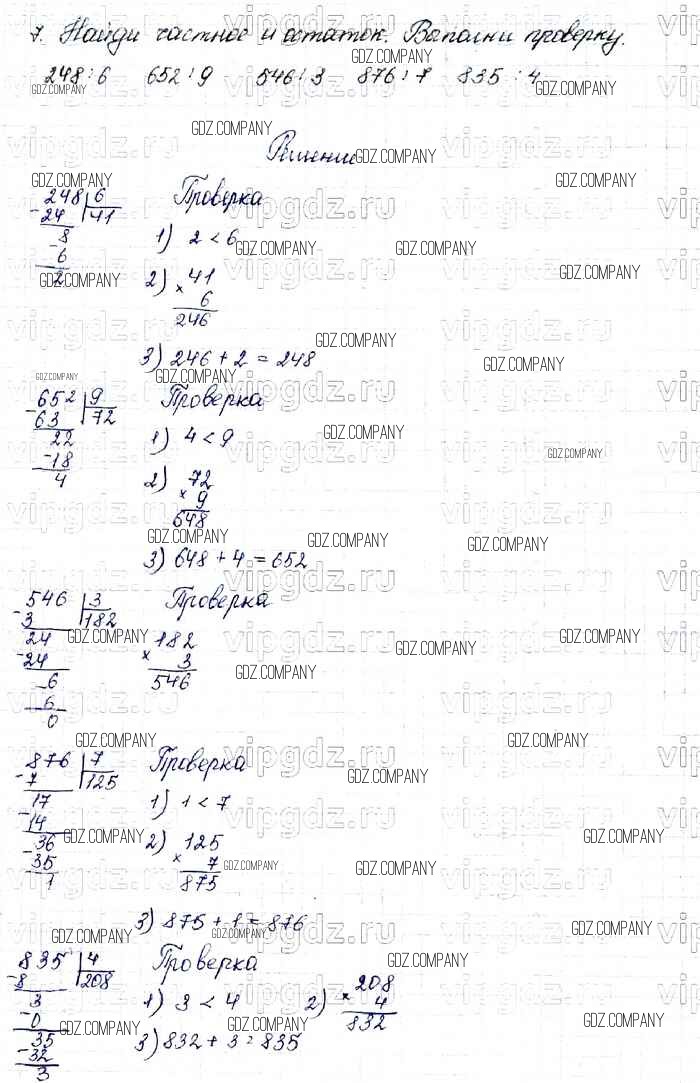 7. Найди частное и остаток. Выполни проверку.
248:6 652:9 546:3 876:7 835:4
Решение
248 6 Проверка
-24 41
8 1) 2 < 6
-6
2
2) 41
× 6
246
3) 246 + 2 = 248
652 9 Проверка
-63 72
22 1) 4 < 9
-18
4
2) 72
× 9
648
3) 648 + 4 = 652
546 3 Проверка
-3 182
24 182
-24 × 3
6 546
-6
0
876 7 Проверка
-7 125
17 1) 1 < 7
-14
36 2) 125
-35 × 7
1 875
3) 875 + 1 = 876
835 4 Проверка
-8 208
3 1) 3 < 4 2) 208
-0 × 4
35 832
-32 3) 832 + 3 = 835
3
vipgdz.ru
GDZ.COMPANY